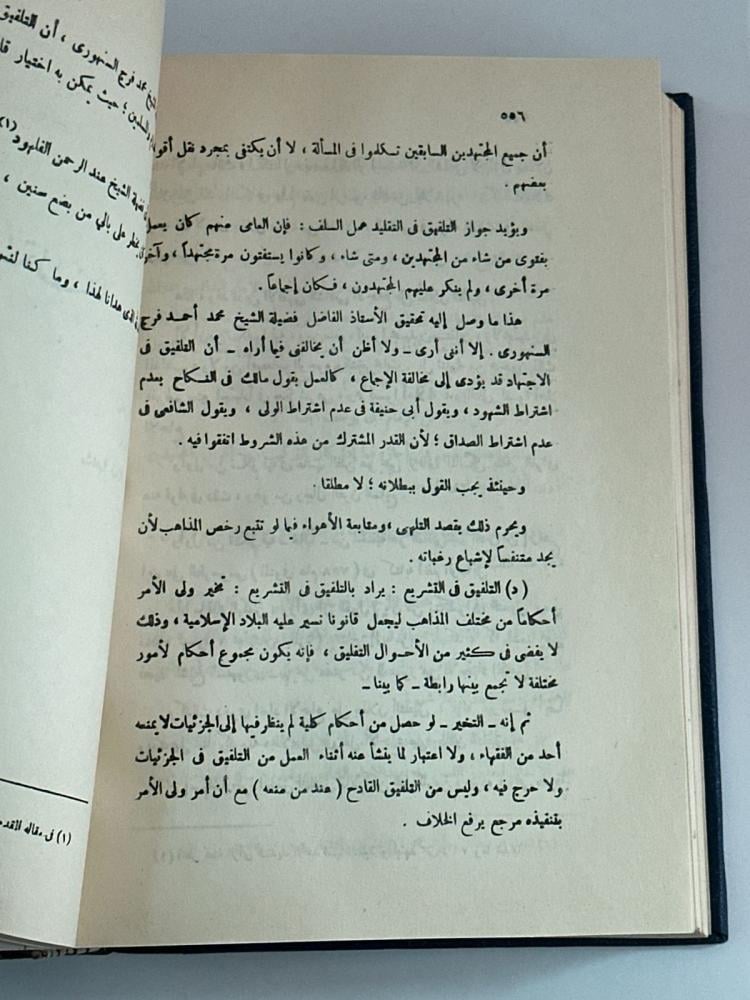 ٥٥٦
أن جميع المجتهدين السابقين تكلموا فى المسألة ، لا أن يكتفى بمجرد نقل أقوال
بعضهم .
ويؤيد جواز التلفيق فى التقليد عمل السلف : فإن العامى منهم كان يعمل
بفتوى من شاء من المجتهدين ، ومتى شاء ، وكانوا يستفتون مرة مجتهداً ، وآخر
مرة أخرى ، ولم ينكر عليهم المجتهدون ، فكان إجماعاً .
هذا ما وصل إليه تحقيق الأستاذ الفاضل فضيلة الشيخ محمد أحمد فرج
السنهورى . إلا أننى أرى ــ ولا أظن أن يخالفنى فيما أراه ــ أن التلفيق فى
الاجتهاد قد يؤدى إلى مخالفة الإجماع ، كالعمل بقول مالك فى النكاح بعدم
اشتراط الشهود ، وبقول أبى حنيفة فى عدم اشتراط الولى ، وبقول الشافعى فى
عدم اشتراط الصداق ؛ لأن القدر المشترك من هذه الشروط اتفقوا فيه .
وحينئذ يجب القول ببطلانه ؛ لا مطلقا .
ويحرم ذلك بقصد التلهى ، ومتابعة الأهواء فيما لو تتبع رخص المذاهب لأن
يجد متنفساً لإشباع رغباته .
( د ) التلفيق فى التشريع : يراد بالتلفيق فى التشريع : تخير ولى الأمر
أحكاماً من مختلف المذاهب ليجعل قانونا نسير عليه البلاد الإسلامية ، وذلك
لا يفضى فى كثير من الأحوال التفليق ، فإنه يكون مجموع أحكام لأمور
مختلفة لا تجمع بينها رابطة ــ كما بينا ــ
ثم إنه ــ التخير ــ لو حصل من أحكام كلية لم ينظر فيها إلى الجزئيات لا يمنعه
أحد من الفقهاء ، ولا اعتبار لما ينشأ عنه أثناء العمل من التلفيق فى الجزئيات
ولا حرج فيه ، وليس من التلفيق القادح ( عند من منعه ) مع أن أمر ولى الأمر
بتنفيذه مرجع يرفع الخلاف .
الشيخ محمد فرج السنهورى ، أن التلفيق
والمسلمين ؛ حيث يمكن به اختيار
فضيلة الشيخ عبد الرحمن القلهود (١)
خطر على بالي من بضع سنين ،
الذى هدانا لهذا ، وما كنا
(١) فى مقاله